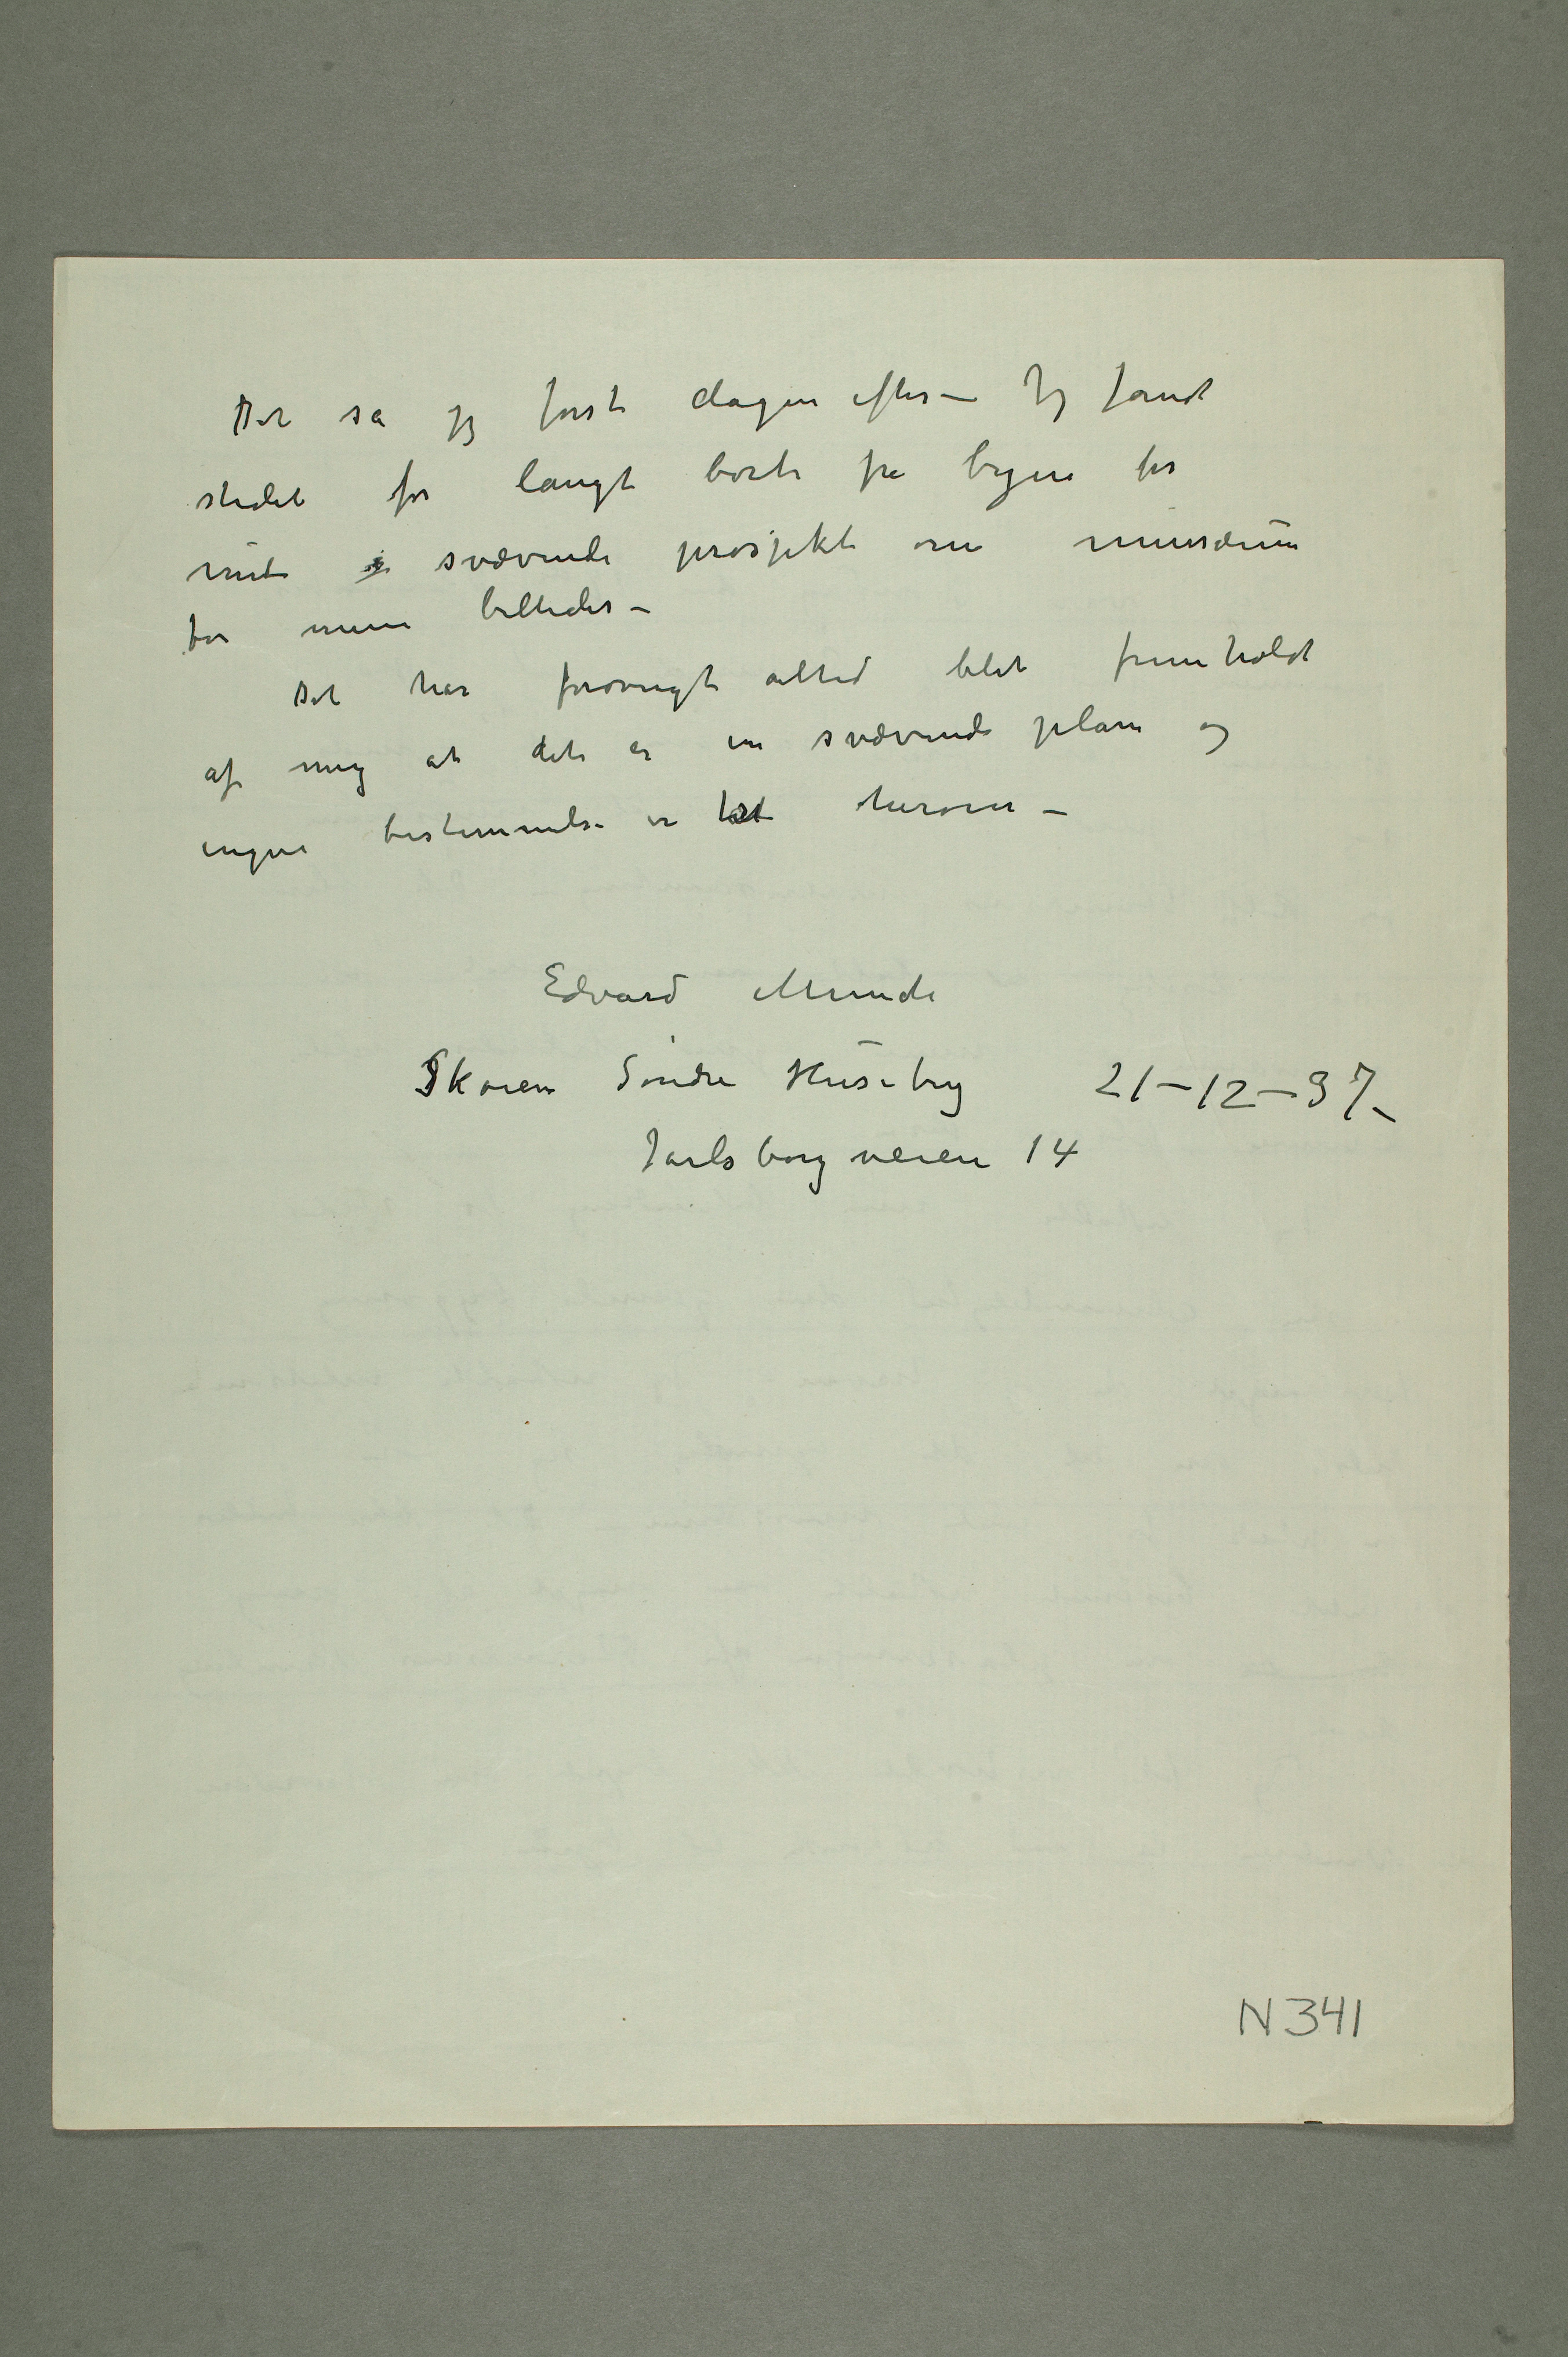 Det sa jeg først dagen efter – Jeg fandt
stedet for langt borte fra byen for
mit svævende prosjekt om musæum
for mine billeder –
Det har forøvrigt altid blit fremholdt
af mig at det er en svævende plan og
ingen bestemmelse er tat herom –
Edvard Munch
Skøien Søndre Huseby 21–12–37–
Jarlsborgveien 14
N341